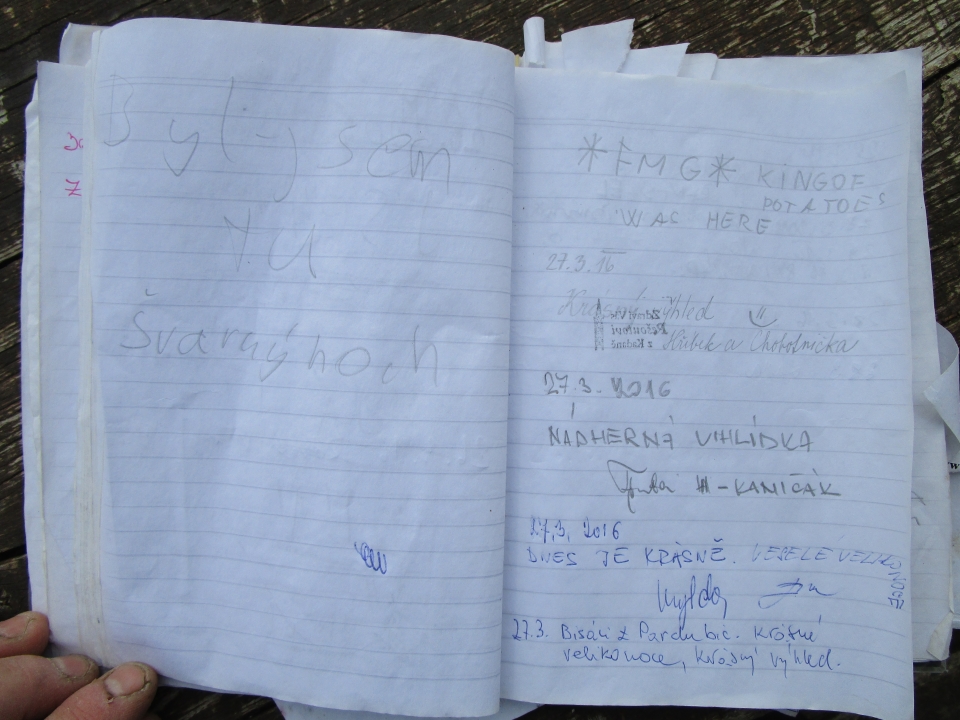 By(-) sem
tu
Švarný hoch
*FMG* KING OF
POTATOES
WAS HERE
27.3.16
Krásný výhled
Hříbek a Chobotnička
Zdravíme
Pešoutovi
z Kadaně
27.3. 2016
NÁDHERNÁ VIHLÍDKA
KANIČÁK
27.3. 2016
DNES JE KRÁSNĚ. VESELÉ VELIKONOCE
27.3. Bisáci z Pardubic. Krásné
velikonoce, krásný výhled.